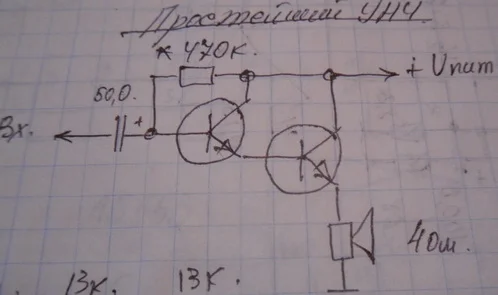 Простейший УНЧ.
* 470к.
+ Uпит
50,0.
+
Вх.
4Ом.
13к. 13к.